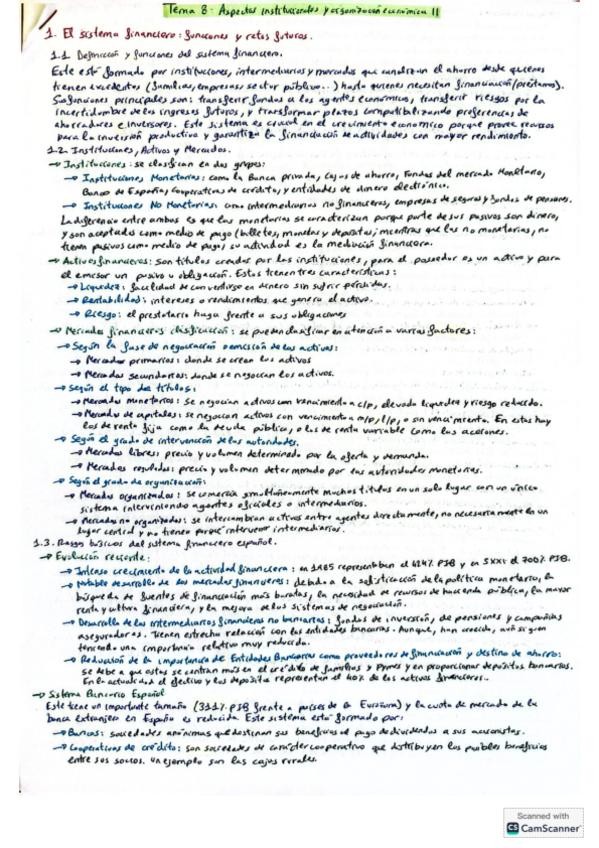 Tema 8: Aspectos institucionales y organización económica II
1. El sistema financiero: funciones y retos futuros.
1.1. Definición y funciones del sistema financiero.
Este está formado por instituciones, intermediarios y mercados que canalizan el ahorro desde quienes
tienen excedentes (familias, empresas, sector público...) hasta quienes necesitan financiación (préstamos).
Sus funciones principales son: transferir fondos a los agentes económicos, transferir riesgos por la
incertidumbre de los ingresos futuros, y transformar plazos compatibilizando preferencias de
ahorradores e inversores. Este sistema es crucial en el crecimiento económico porque provee recursos
para la inversión productiva y garantiza la financiación de actividades con mayor rendimiento.
1.2. Instituciones, Activos y Mercados.
→ Instituciones: se clasifican en dos grupos:
→ Instituciones Monetarias: como la Banca privada, cajas de ahorro, fondos del mercado Monetario,
Banco de España, cooperativas de crédito, y entidades de dinero electrónico.
→ Instituciones No Monetarias: como intermediarios no financieros, empresas de seguros y fondos de pensiones.
La diferencia entre ambos es que las monetarias se caracterizan porque parte de sus pasivos son dinero,
y son aceptados como medio de pago (billetes, monedas y depósitos) mientras que las no monetarias, no
tienen pasivos como medio de pago, su actividad es la mediación financiera.
→ Activos financieros: son títulos creados por las instituciones, para el poseedor es un activo y para
el emisor un pasivo u obligación. Estos tienen tres características:
→ Liquidez: facilidad de convertirse en dinero sin sufrir pérdidas.
→ Rentabilidad: intereses o rendimientos que genera el activo.
→ Riesgo: el prestatario haga frente a sus obligaciones
→ Mercados financieros clasificación: se pueden clasificar en atención a varios factores:
→ Según la fase de negociación o emisión de los activos:
→ Mercados primarios: donde se crean los activos
→ Mercados secundarios: donde se negocian los activos.
→ Según el tipo de títulos:
→ Mercados monetarios: se negocian activos con vencimiento a c/p, elevada liquidez y riesgo reducido.
→ Mercados de capitales: se negocian activos con vencimiento a m/p, l/p, o sin vencimiento. En estos hay
los de renta fija como la deuda pública, o los de renta variable como las acciones.
→ Según el grado de intervención de las autoridades.
→ Mercados libres: precio y volumen determinado por la oferta y demanda.
→ Mercados regulados: precio y volumen determinado por las autoridades monetarias.
→ Según el grado de organización:
→ Mercados organizados: se comercia simultáneamente muchos títulos en un solo lugar con un único
sistema interviniendo agentes oficiales o intermediarios.
→ Mercados no organizados: se intercambian activos entre agentes directamente, no necesariamente en un
lugar central y no tienen porqué intervenir intermediarios.
1.3. Rasgos básicos del sistema financiero español.
→ Evolución reciente:
→ Intenso crecimiento de la actividad financiera: en 1985 representaban el 424% PIB y en SXXI el 700% PIB.
→ Notable desarrollo de los mercados financieros: debido a la sofisticación de la política monetaria, la
búsqueda de fuentes de financiación más baratas, la necesidad de recursos de hacienda pública, la mayor
renta y cultura financiera, y la mejora de los sistemas de negociación.
→ Desarrollo de los intermediarios financieros no bancarios: fondos de inversión, de pensiones y compañías
aseguradoras. Tienen estrecha relación con las entidades bancarias. Aunque, han crecido, aún siguen
teniendo una importancia relativa muy reducida.
→ Reducción de la importancia de Entidades Bancarias como proveedores de financiación y destino de ahorro:
se debe a que estas se centran más en el crédito de familias y Pymes y en proporcionar depósitos bancarios.
En la actualidad el efectivo y los depósitos representan el 40% de los activos financieros.
→ Sistema Bancario Español
Este tiene un importante tamaño (311% PIB frente a países de la Eurozona) y la cuota de mercado de la
banca extranjera en España es reducida. Este sistema está formado por:
→ Bancos: sociedades anónimas que destinan sus beneficios al pago de dividendos a sus accionistas.
→ Cooperativas de crédito: son sociedades de carácter cooperativo que distribuyen los posibles beneficios
entre sus socios. un ejemplo son las cajas rurales.
Scanned with
CS CamScanner